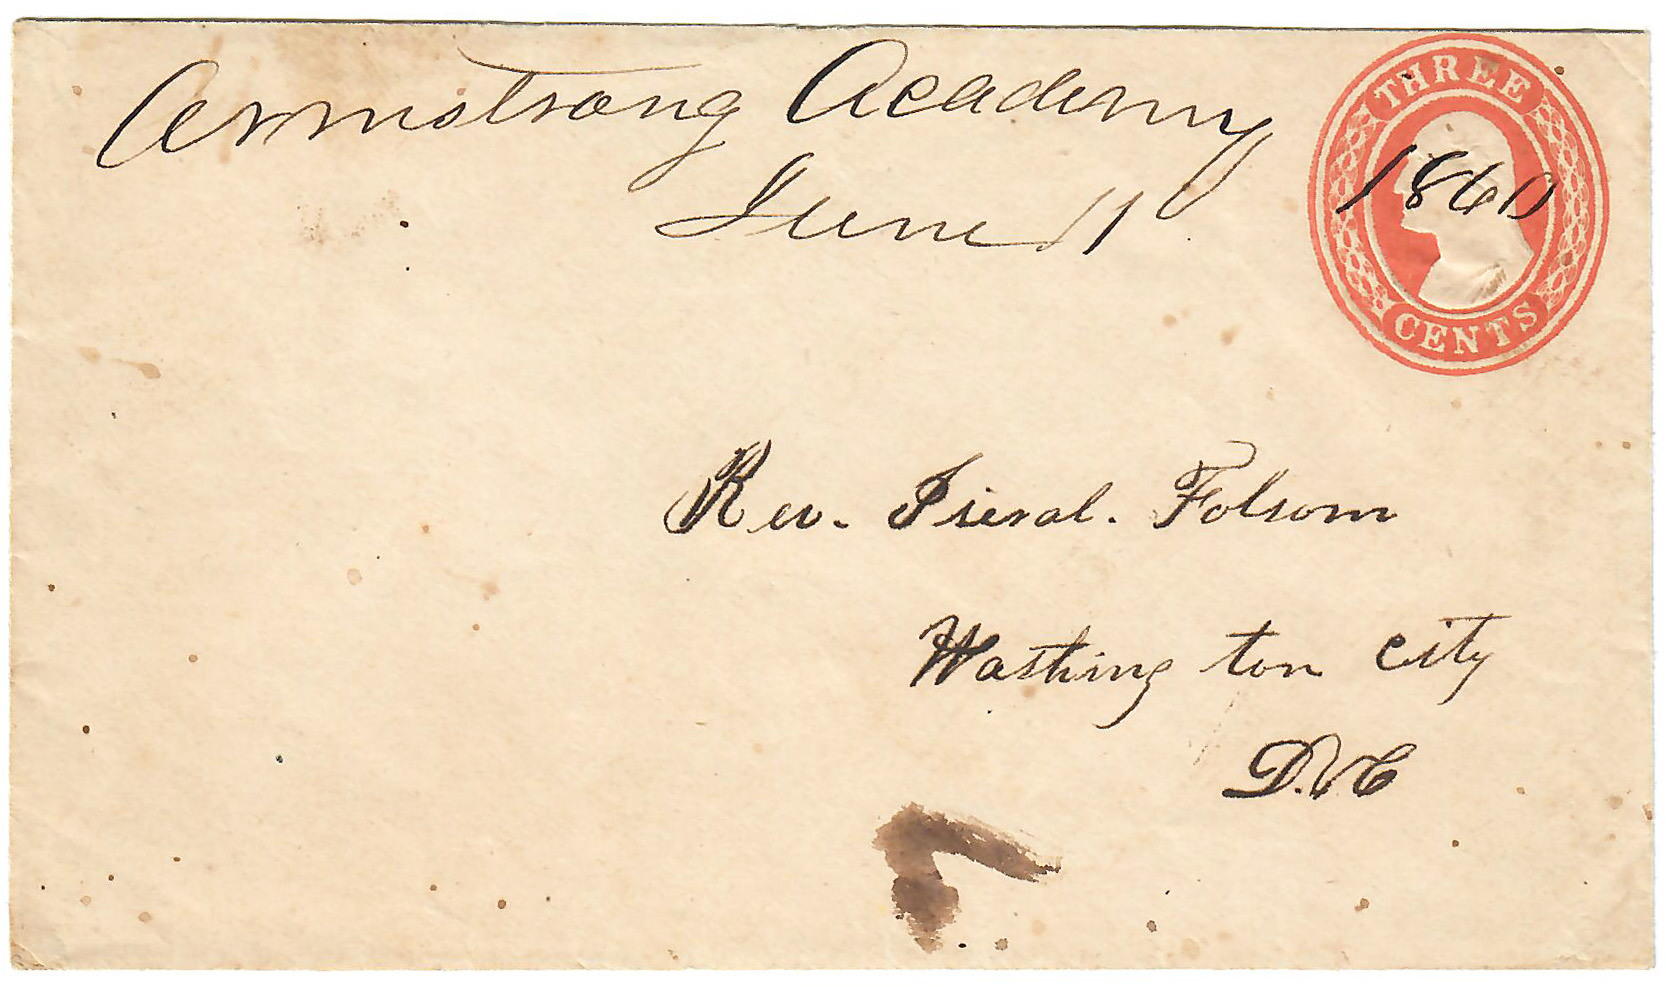 Armstrong Academy
June 11 1860
THREE
CENTS
Rev. Iseral. Folsom
Washing ton City
D.C